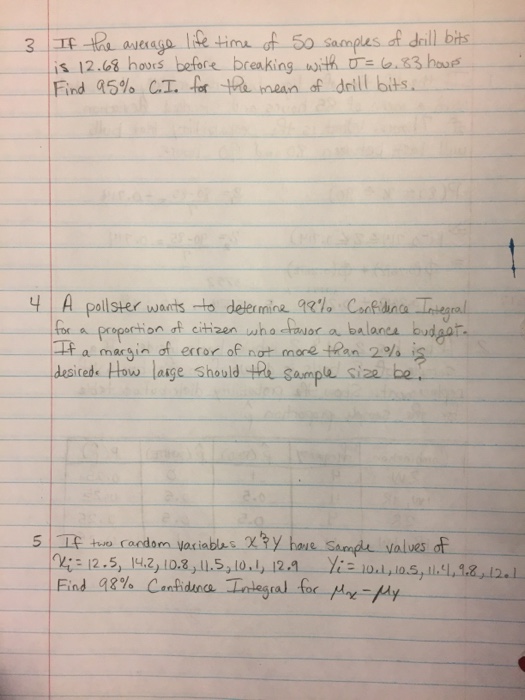 3 If the average life time of 50 samples of drill bits
is 12.68 hours before breaking with σ = 6.83 hours
Find 95% C.I. for the mean of drill bits.
4 A pollster wants to determine 98% Confidence Integral
for a proportion of citizen who favor a balance budget.
If a margin of error of not more than 2% is
desired. How large should the sample size be?
5 If two random variables X & Y have sample values of
Xi = 12.5, 14.2, 10.8, 11.5, 10.1, 12.9 Yi = 10.1, 10.5, 11.4, 9.8, 12.1
Find 98% Confidence Integral for μx - μy